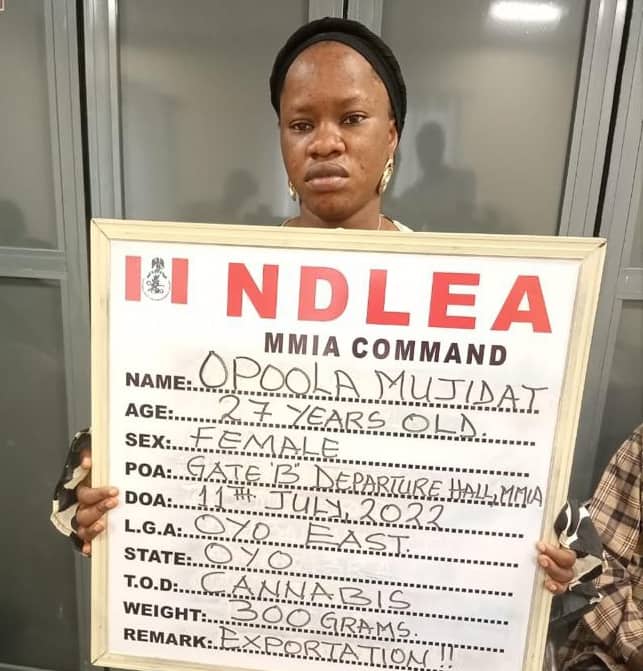 NDLEA
MMIA COMMAND
NAME: OPOOLA MUJIDAT
AGE: 27 YEARS OLD.
SEX: FEMALE
POA: GATE 'B' DEPARTURE HALL, MMIA
DOA: 11TH JULY, 2022
L.G.A: OYO EAST.
STATE: OYO
T.O.D: CANNABIS
WEIGHT: 300 GRAMS.
REMARK: EXPORTATION"